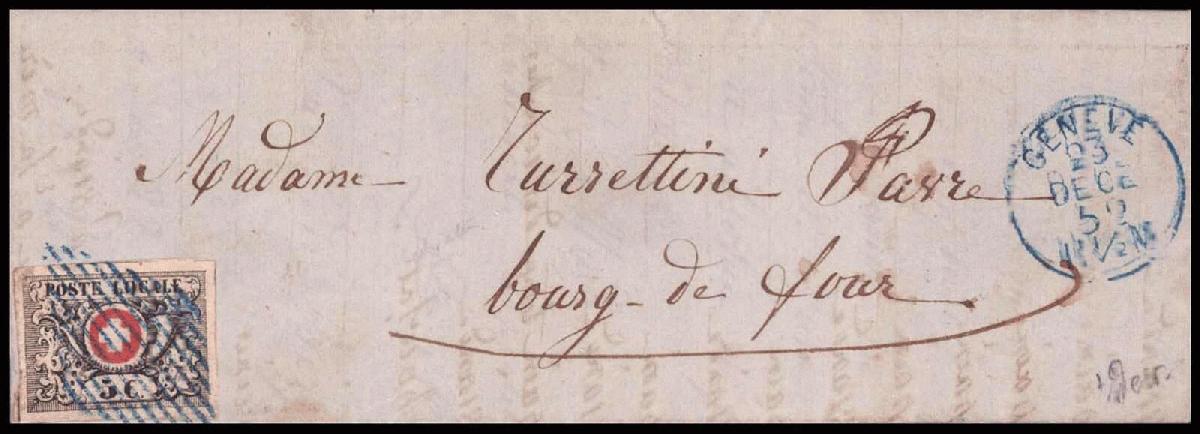 Madame Turrettini Favre
bourg-de four
GENÈVE
23
DECE
52
POSTE LOCALE
5 C.